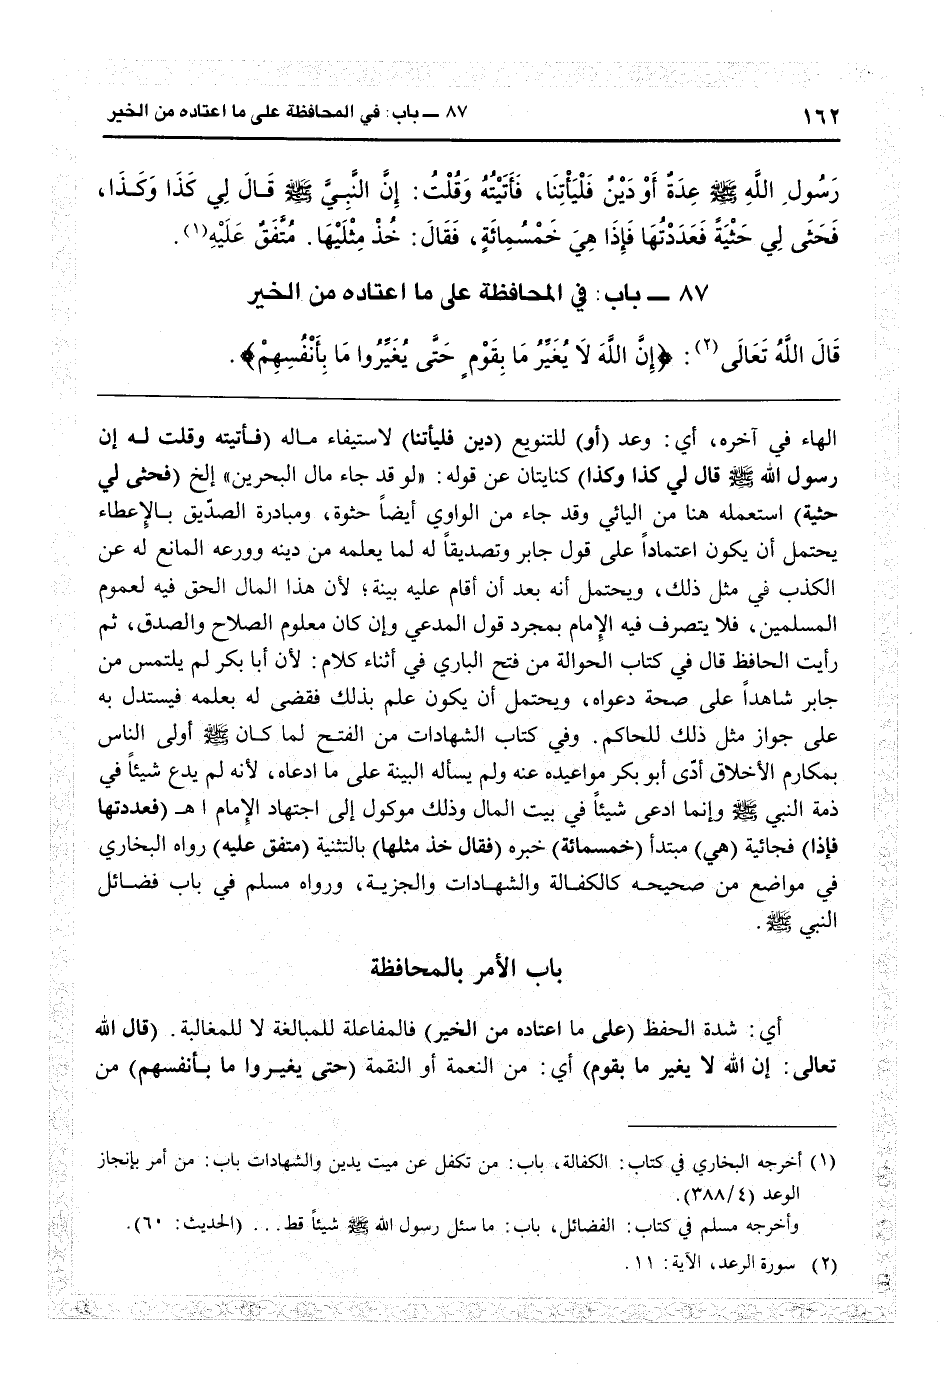 ١٦٢ ٨٧ ـ باب: في المحافظة على ما اعتاده من الخير
رَسُولِ اللَّهِ ﷺ عِدَةٌ أَوْ دَيْنٌ فَلْيَأْتِنَا، فَأَتَيْتُهُ وَقُلْتُ: إِنَّ النَّبِيَّ ﷺ قَالَ لِي كَذَا وَكَذَا،
فَحَثَى لِي حَثْيَةً فَعَدَدْتُهَا فَإِذَا هِيَ خَمْسُمِائَةٍ، فَقَالَ: خُذْ مِثْلَيْهَا. مُتَّفَقٌ عَلَيْهِ(١).
٨٧ ـ باب: في المحافظة على ما اعتاده من الخير
قَالَ اللَّهُ تَعَالَى(٢): ﴿إِنَّ اللَّهَ لَا يُغَيِّرُ مَا بِقَوْمٍ حَتَّى يُغَيِّرُوا مَا بِأَنْفُسِهِمْ﴾.
الهاء في آخره، أي: وعد (أو) للتنويع (دين فليأتنا) لاستيفاء ماله (فأتيته وقلت له إن
رسول الله ﷺ قال لي كذا وكذا) كنايتان عن قوله: «لو قد جاء مال البحرين» إلخ (فحثى لي
حثية) استعمله هنا من اليائي وقد جاء من الواوي أيضاً حثوة، ومبادرة الصدّيق بالإعطاء
يحتمل أن يكون اعتماداً على قول جابر وتصديقاً له لما يعلمه من دينه وورعه المانع له عن
الكذب في مثل ذلك، ويحتمل أنه بعد أن أقام عليه بينة؛ لأن هذا المال الحق فيه لعموم
المسلمين، فلا يتصرف فيه الإمام بمجرد قول المدعي وإن كان معلوم الصلاح والصدق، ثم
رأيت الحافظ قال في كتاب الحوالة من فتح الباري في أثناء كلام: لأن أبا بكر لم يلتمس من
جابر شاهداً على صحة دعواه، ويحتمل أن يكون علم بذلك فقضى له بعلمه فيستدل به
على جواز مثل ذلك للحاكم. وفي كتاب الشهادات من الفتح لما كان ﷺ أولى الناس
بمكارم الأخلاق أدّى أبو بكر مواعيده عنه ولم يسأله البينة على ما ادعاه، لأنه لم يدع شيئاً في
ذمة النبي ﷺ وإنما ادعى شيئاً في بيت المال وذلك موكول إلى اجتهاد الإمام اهـ (فعددتها
فإذا) فجائية (هي) مبتدأ (خمسمائة) خبره (فقال خذ مثلها) بالتثنية (متفق عليه) رواه البخاري
في مواضع من صحيحه كالكفالة والشهادات والجزية، ورواه مسلم في باب فضائل
النبي ﷺ.
باب الأمر بالمحافظة
أي: شدة الحفظ (على ما اعتاده من الخير) فالمفاعلة للمبالغة لا للمغالبة. (قال الله
تعالى: إن الله لا يغير ما بقوم) أي: من النعمة أو النقمة (حتى يغيروا ما بأنفسهم) من
(١) أخرجه البخاري في كتاب: الكفالة، باب: من تكفل عن ميت بدين والشهادات باب: من أمر بإنجاز
الوعد (٣٨٨/٤).
وأخرجه مسلم في كتاب: الفضائل، باب: ما سئل رسول الله ﷺ شيئاً قط... (الحديث: ٦٠).
(٢) سورة الرعد، الآية: ١١.